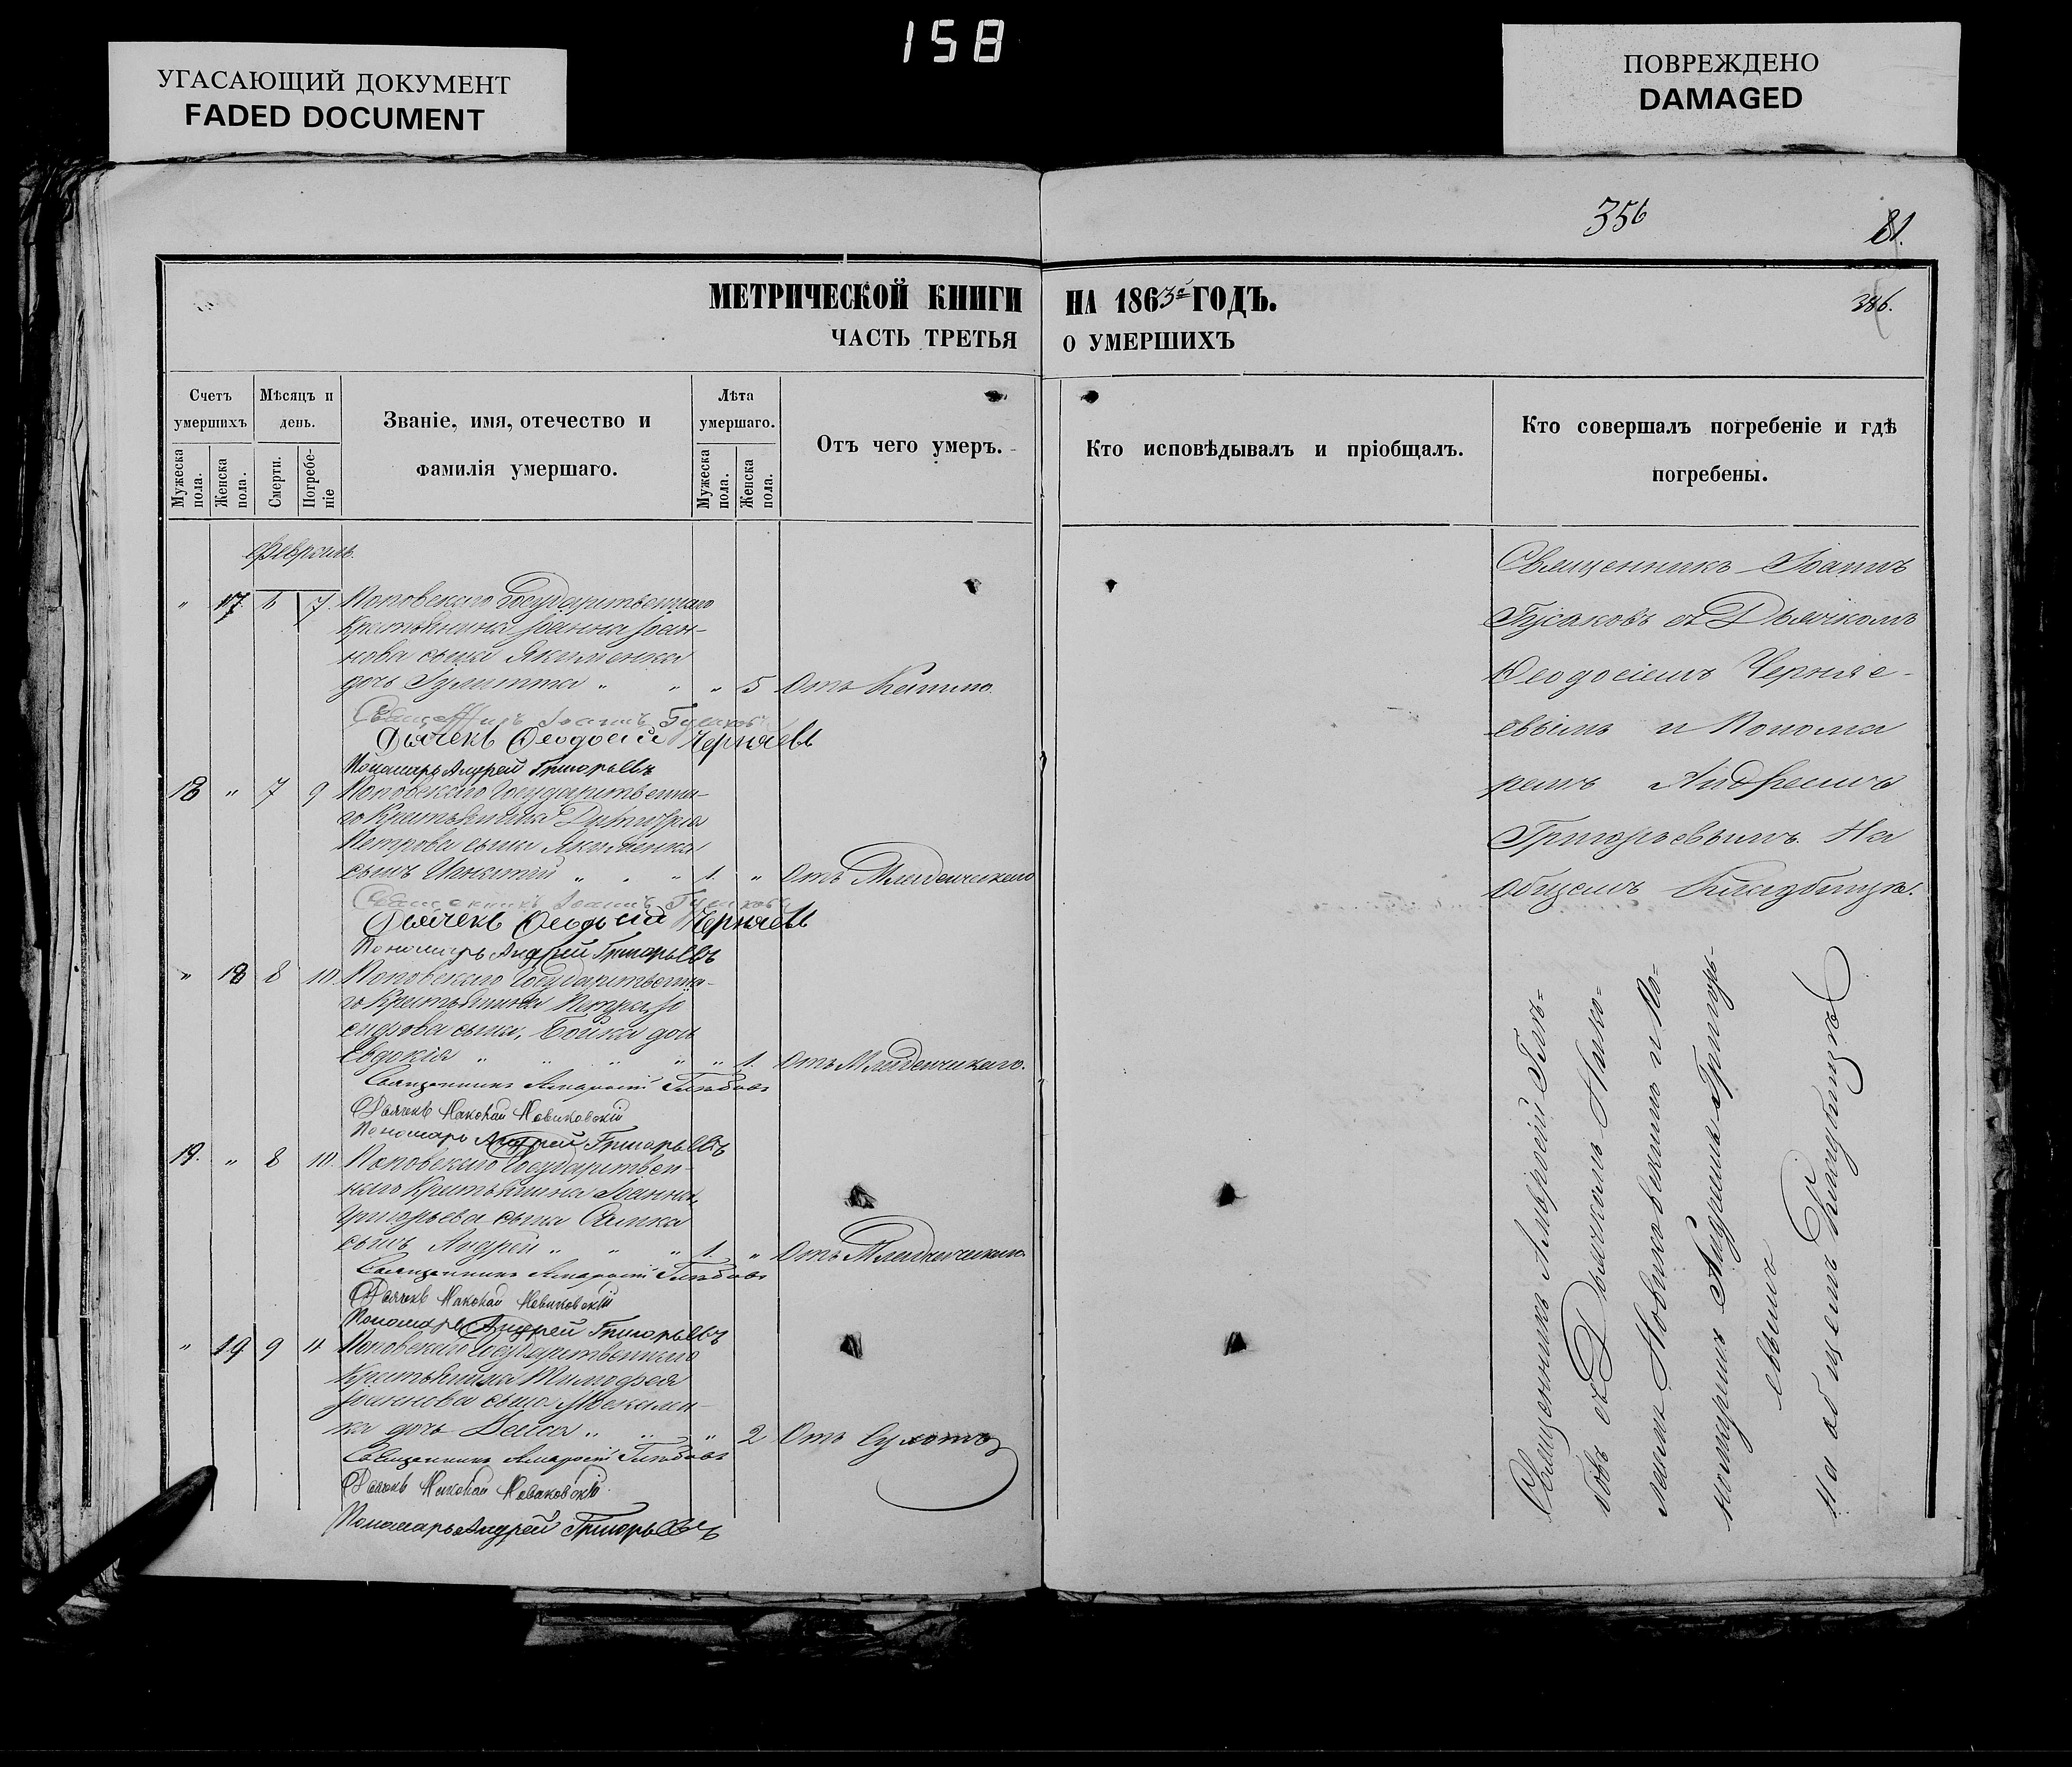 158
УГАСАЮЩИЙ ДОКУМЕНТ
FADED DOCUMENT
ПОВРЕЖДЕНО
DAMAGED
356
81.
МЕТРИЧЕСКОЙ КНИГИ НА 1863 ГОДЪ.
386.
ЧАСТЬ ТРЕТЬЯ О УМЕРШИХЪ
Счетъ умершихъ
Мужеска пола.
Женска пола.
Мѣсяцъ и день.
Смерти.
Погребеніе
Званіе, имя, отечество и фамилія умершаго.
Лѣта умершаго.
Мужеска пола.
Женска пола.
Отъ чего умеръ.
Кто исповѣдывалъ и пріобщалъ.
Кто совершалъ погребеніе и гдѣ погребены.
Февраль.
" 17 6 7 Поповскаго Государственнаго
Крестьянина Іоанна Іоан-
нова сына Якименка
дочь Іулитта " " " 5 Отъ
Священникъ Іоаннъ Гусаковъ
Дьячекъ Ѳеодосій Черняевъ
Пономарь Андрей Григорьевъ
18 " 7 9 Поповскаго Государственна-
го Крестьянина Димитрія
Петрова сына Якименка
сынъ " " " 1 " Отъ Младенческаго
Священникъ Іоаннъ Гусаковъ
Дьячекъ Ѳеодосій Черняевъ
Пономарь Андрей Григорьевъ
" 18 8 10 Поповскаго Государственна-
го Крестьянина Петра
сына, Бойка дочь
Евдокія " " " " " 1. Отъ Младенческаго.
Священникъ Амвросій Глѣбовъ
Дьячекъ Николай Новиковскій
Пономарь Андрей Григорьевъ
19. " 8 10. Поповскаго Государствен-
наго Крестьянина Іоанна
Григорьева сына
сынъ Андрей " " " 1. " Отъ Младенческаго.
Священникъ Амвросій Глѣбовъ
Дьячекъ Николай Новиковскій
Пономарь Андрей Григорьевъ
" 19 9 11 Поповскаго Государственнаго
Крестьянина Тимофея
Іоаннова сына
ка дочь " " " 2 Отъ Сухотъ
Священникъ Амвросій Глѣбовъ
Дьячекъ Николай Новиковскій
Пономарь Андрей Григорьевъ
Священникъ Іоаннъ
Гусаковъ съ Дьячкомъ
Ѳеодосіемъ Черняе-
евымъ и Понома
ремъ Андреемъ
Григорьевымъ. На
общемъ Кладбищѣ.
Священникъ Амвросій Глѣ-
бовъ съ Дьячкомъ Нико-
лаемъ Новиковскимъ и По-
номаремъ Андреемъ Григорь-
евымъ
На общемъ Кладбищѣ